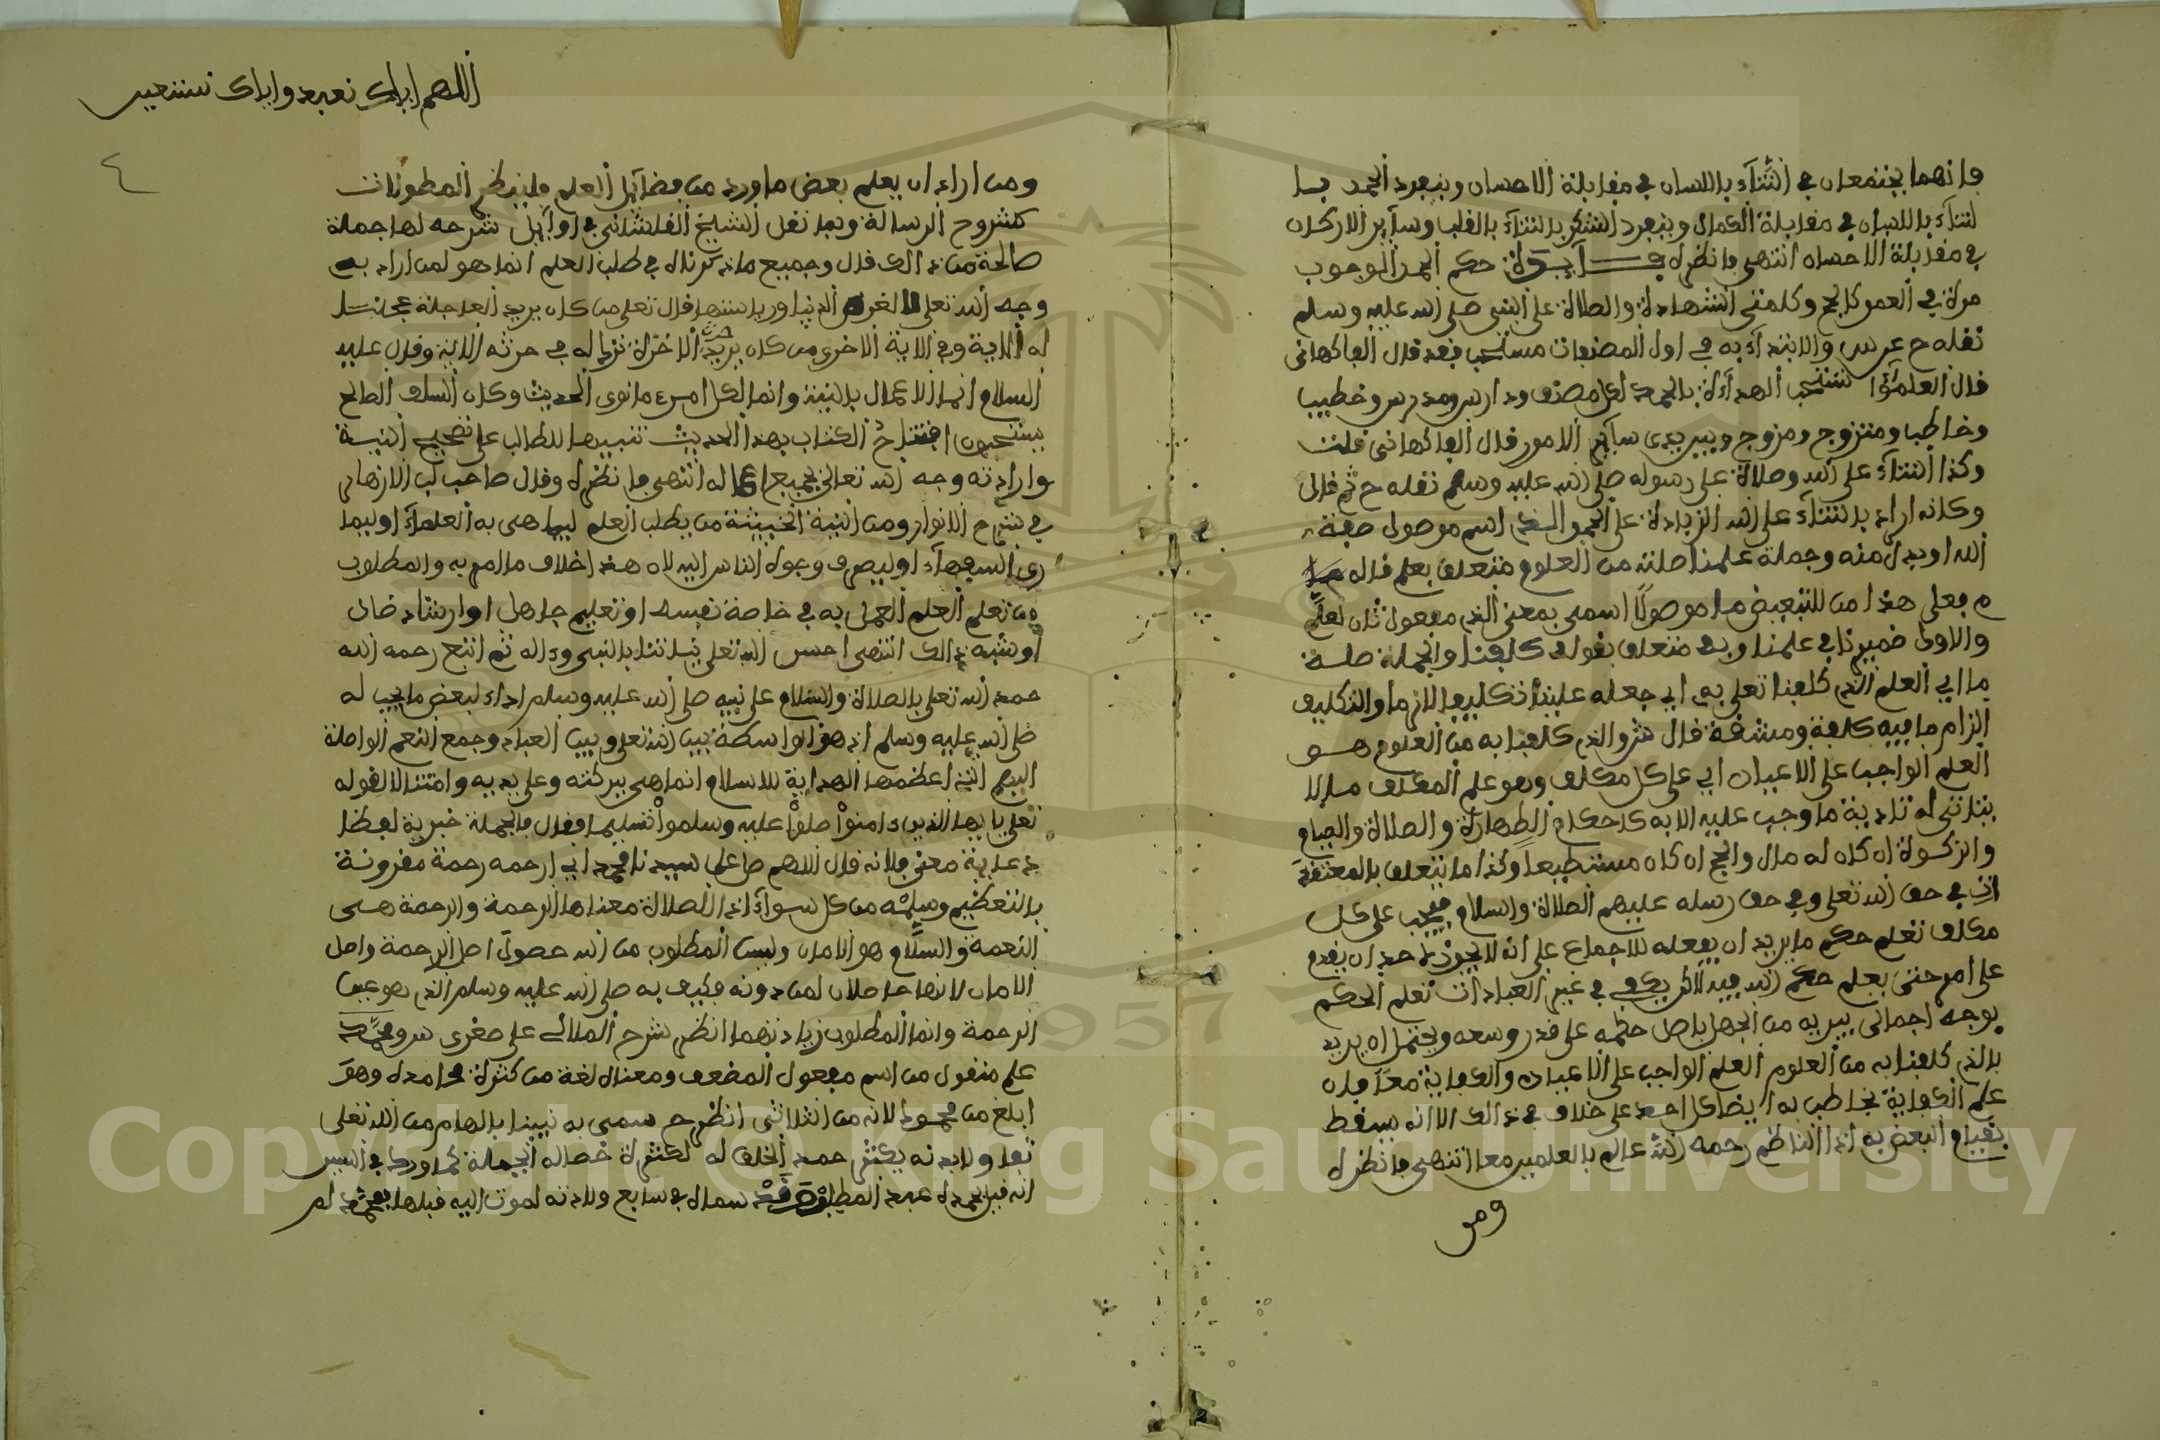 فانهما يجتمعان في الثناء باللسان في مقابلة الاحسان وينفرد الحمد با
لثناء باللسان في مقابلة الكمال وينفرد الشكر بالثناء بالقلب وسائر الاركان
في مقابلة الاحسان انتهى فانظره فــائدة حكم الحمد الوجوب
مرة في العمر كالحج وكلمتي الشهادة والصلاة على النبي صلى الله عليه وسلم
نقله ح عن س والابتداء به في اول المصنفات مستحب فقد قال الفاكهاني
قال العلماؤا تستحب البداءة بالحمد لكل مصنف ودارس ومدرس وخطيب
وخاطب ومتزوج ومزوج وبين يدي سائر الامور قال الفاكهاني قلت
وكذا الثناء على الله وصلاة على رسوله صلى الله عليه وسلم نقله ح ثم قال
وكانه اراد بالثناء على الله الزيادة على الحمد والذي اسم موصول صفة
الله او بدل منه وجملة علمنا صلته من العلوم متعلق بعلم قاله
م فعلى هذا من للتبعيض ما موصولا اسمي بمعنى الذي مفعول ثان لعلم
والاول ضمير نا في علمنا وبه متعلق بقوله كلفنا والجملة صلة
ما اي العلم الذي كلفنا تعلى به اي جعله علينا تكليفا لازما والتكليف
الزام ما فيه كلفة ومشقة قال ش والذي كلفنا به من العلوم هــو
العلم الواجب على الاعيان اي على كل مكلف وهو علم المكلف ما لا
يتاتى له تادية ما وجب عليه الا به كاحكام الطهارة والصلاة والصيام
والزكوة ان كان له مال والحج ان كان مستطيعا وكذا ما يتعلق بالمعتقد
ات في حق الله تعلى وفي حق رسله عليهم الصلاة والسلام فيجب على كل
مكلف تعلم حكم ما يريد ان يفعله للاجماع على انه لا يجوز لاحد ان يقدم
على امر حتى يعلم حكم الله فيه لاكن يكفي في غير العبادات تعلم الحكم
بوجه اجمالي يبريه من الجهل باصل حكمه على قدر وسعه ويحتمل ان يريد
بالذي كلفنا به من العلوم العلم الواجب على الاعيان والكفاية معا فان
علم الكفاية يخاطب به ايضا كل احد على خلاف في ذالك الا انه يسقط
بقيام البعض به اذ الناظم رحمه الله عالم بالعلمين معا انتهى فانظره
ومن
اللهم اياك نعبد واياك نستعين
٤
ومن اراد ان يعلم بعض ما ورد من فضائل العلم فلينظر المطولات
كشروح الرسالة وبعد نقل الشيخ القلشاني في اوائل شرحه لها جملة
صالحة من ذالك قال وجميع ما ذكرناه في طلب العلم انما هو لمن اراد به
وجه الله تعلى لا لغرض الدنيا ورياستها قال تعلى من كان يريد العاجلة عجلنا
له الاية وفي الاية الاخرى من كان يريد حرث الاخرة نزد له في حرثه الاية وقال عليه
السلام انما الاعمال بالنية وانما لكل امرء ما نوى الحديث وكان السلف الصالح
يستحبون افتتاح الكتاب بهذا الحديث تنبيها للطالب على تصحيح النية
وارادته وجه الله تعالى بجميع اعماله انتهى فانظره وقال صاحب لب الازهار
في شرح الانوار ومن النية الخبيثة من يطلب العلم ليباهي به العلماء او ليما
ري السفهاء او ليصرف وجوه الناس اليه لان هذه اخلاف ما المر به والمطلوب
من تعلم العلم العمل به في خاصة نفسه او تعليم جاهل او ارشاد ضال
او شبه ذالك انتهى احسن الله تعلى نياتنا بالنبي وءاله ثم اتبع رحمه الله
حمد الله تعلى بالصلاة والسلام على نبيه صلى الله عليه وسلم اداء لبعض ما يجب له
صلى الله عليه وسلم اذ هو الواسطة بين الله تعلى وبين العباد وجمع النعم الواصلة
اليهم التي اعظمها الهداية للاسلام انما هي ببركته وعلى يديه وامتثالا لقوله
تعلى يا يها الذين ءامنوا صلوا عليه وسلموا تسليما فقال فالجملة خبرية لفظا
دعائية معنى فلانه قال اللهم صل على سيدنا محمد اي ارحمه رحمة مقرونة
بالتعظيم وسلمه من كل سواء اذ الصلاة معناها الرحمة والرحمة هــي
النعمة والسلام هو الامان وليس المطلوب من الله حصول اصل الرحمة واصل
الامان لانهما حاصلان لمن دونه فكيف به صلى الله عليه وسلم الذي هو عين
الرحمة وانما المطلوب زيادتهما انظر شرح الملالي على صغرى س ومحمد
علم منقول من اسم مفعول المضعف ومعناه لغة من كثرة محامده وهو
ابلغ من محمود لانه من الثلاثي انظر ح سمي به نبينا بالهام من الله تعلى
تفاولا بانه يكثر حمد الخلق له لكثرة خصاله الجميلة كما ورد في السير
انه قيل لجده عبد المطلب وقد سماه في سابع ولادته لموت ابيه قبلها بعمه لم